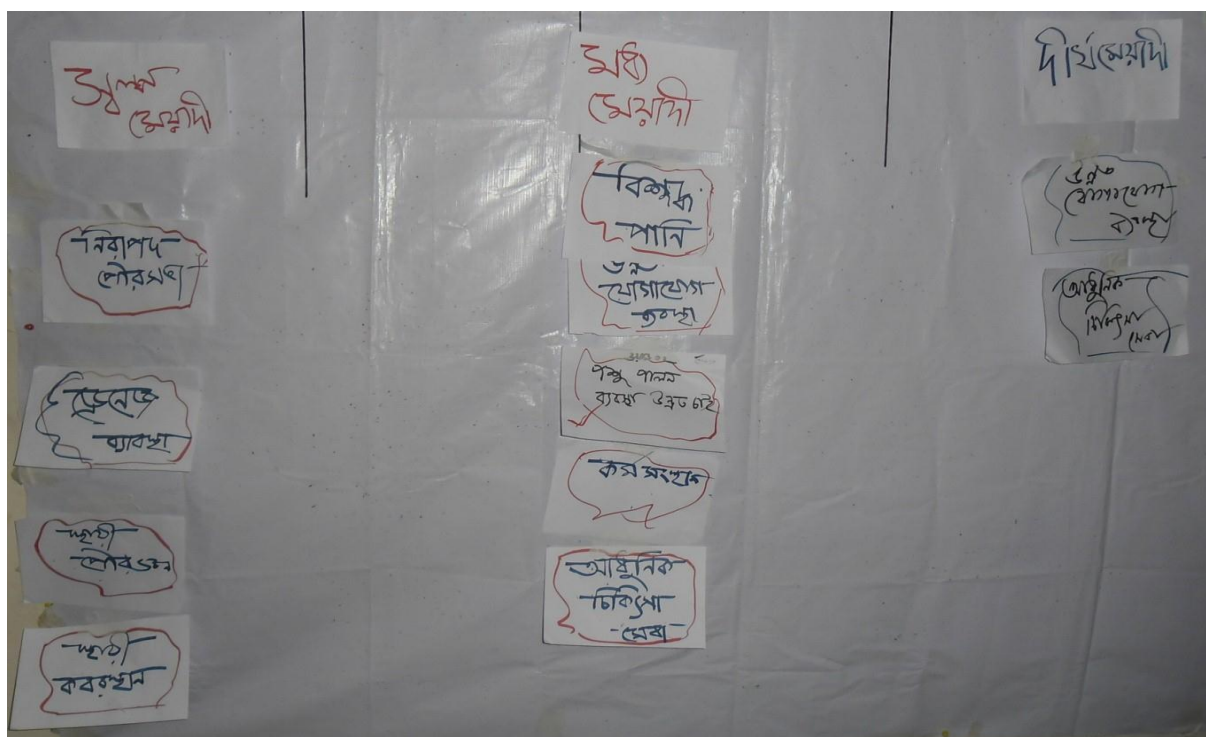 স্বল্প
মেয়াদী
নিরাপদ
পৌরসভা
ড্রেনেজ
ব্যাবস্থা
স্থায়ী
পৌরভবন
স্থায়ী
কবরস্থান
মধ্য
মেয়াদী
বিশুদ্ধ
পানি
উন্নত
যোগাযোগ
ব্যবস্থা
পশু পালন
ব্যবস্থা উন্নত চাই
কর্ম সংস্থান
আধুনিক
চিকিৎসা
সেবা
দীর্ঘমেয়াদী
উন্নত
যোগাযোগ
ব্যবস্থা
আধুনিক
চিকিৎসা
সেবা